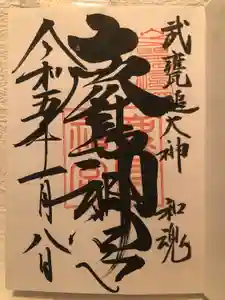 武甕槌大神 和魂
鹿島神宮
令和五年十一月八日